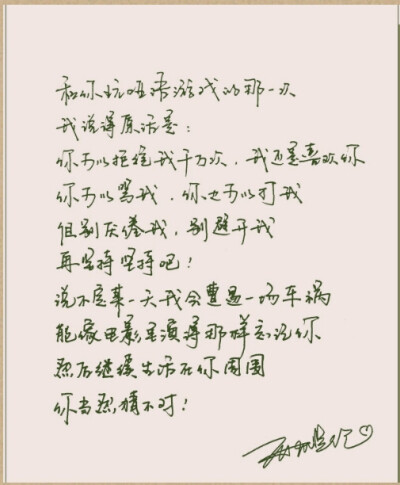 和你玩哑语游戏的那一次
我说得原话是：
你可以拒绝我千万次，我还是喜欢你
你可以骂我，你也可以打我
但别厌倦我，别避开我
再坚持坚持吧！
说不定某一天我会遭遇一场车祸
能像电影里演得那样忘记你
然后继续生活在你周围
你当然猜不对！